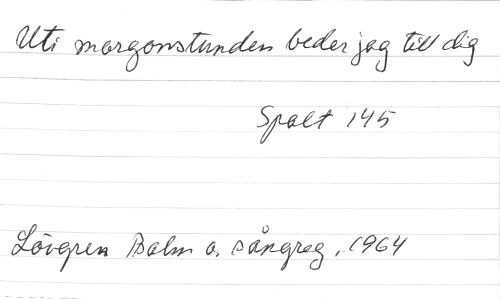 Uti morgonstunden beder jag till dig
Spalt 145
Lövgren Psalm o. sångreg, 1964